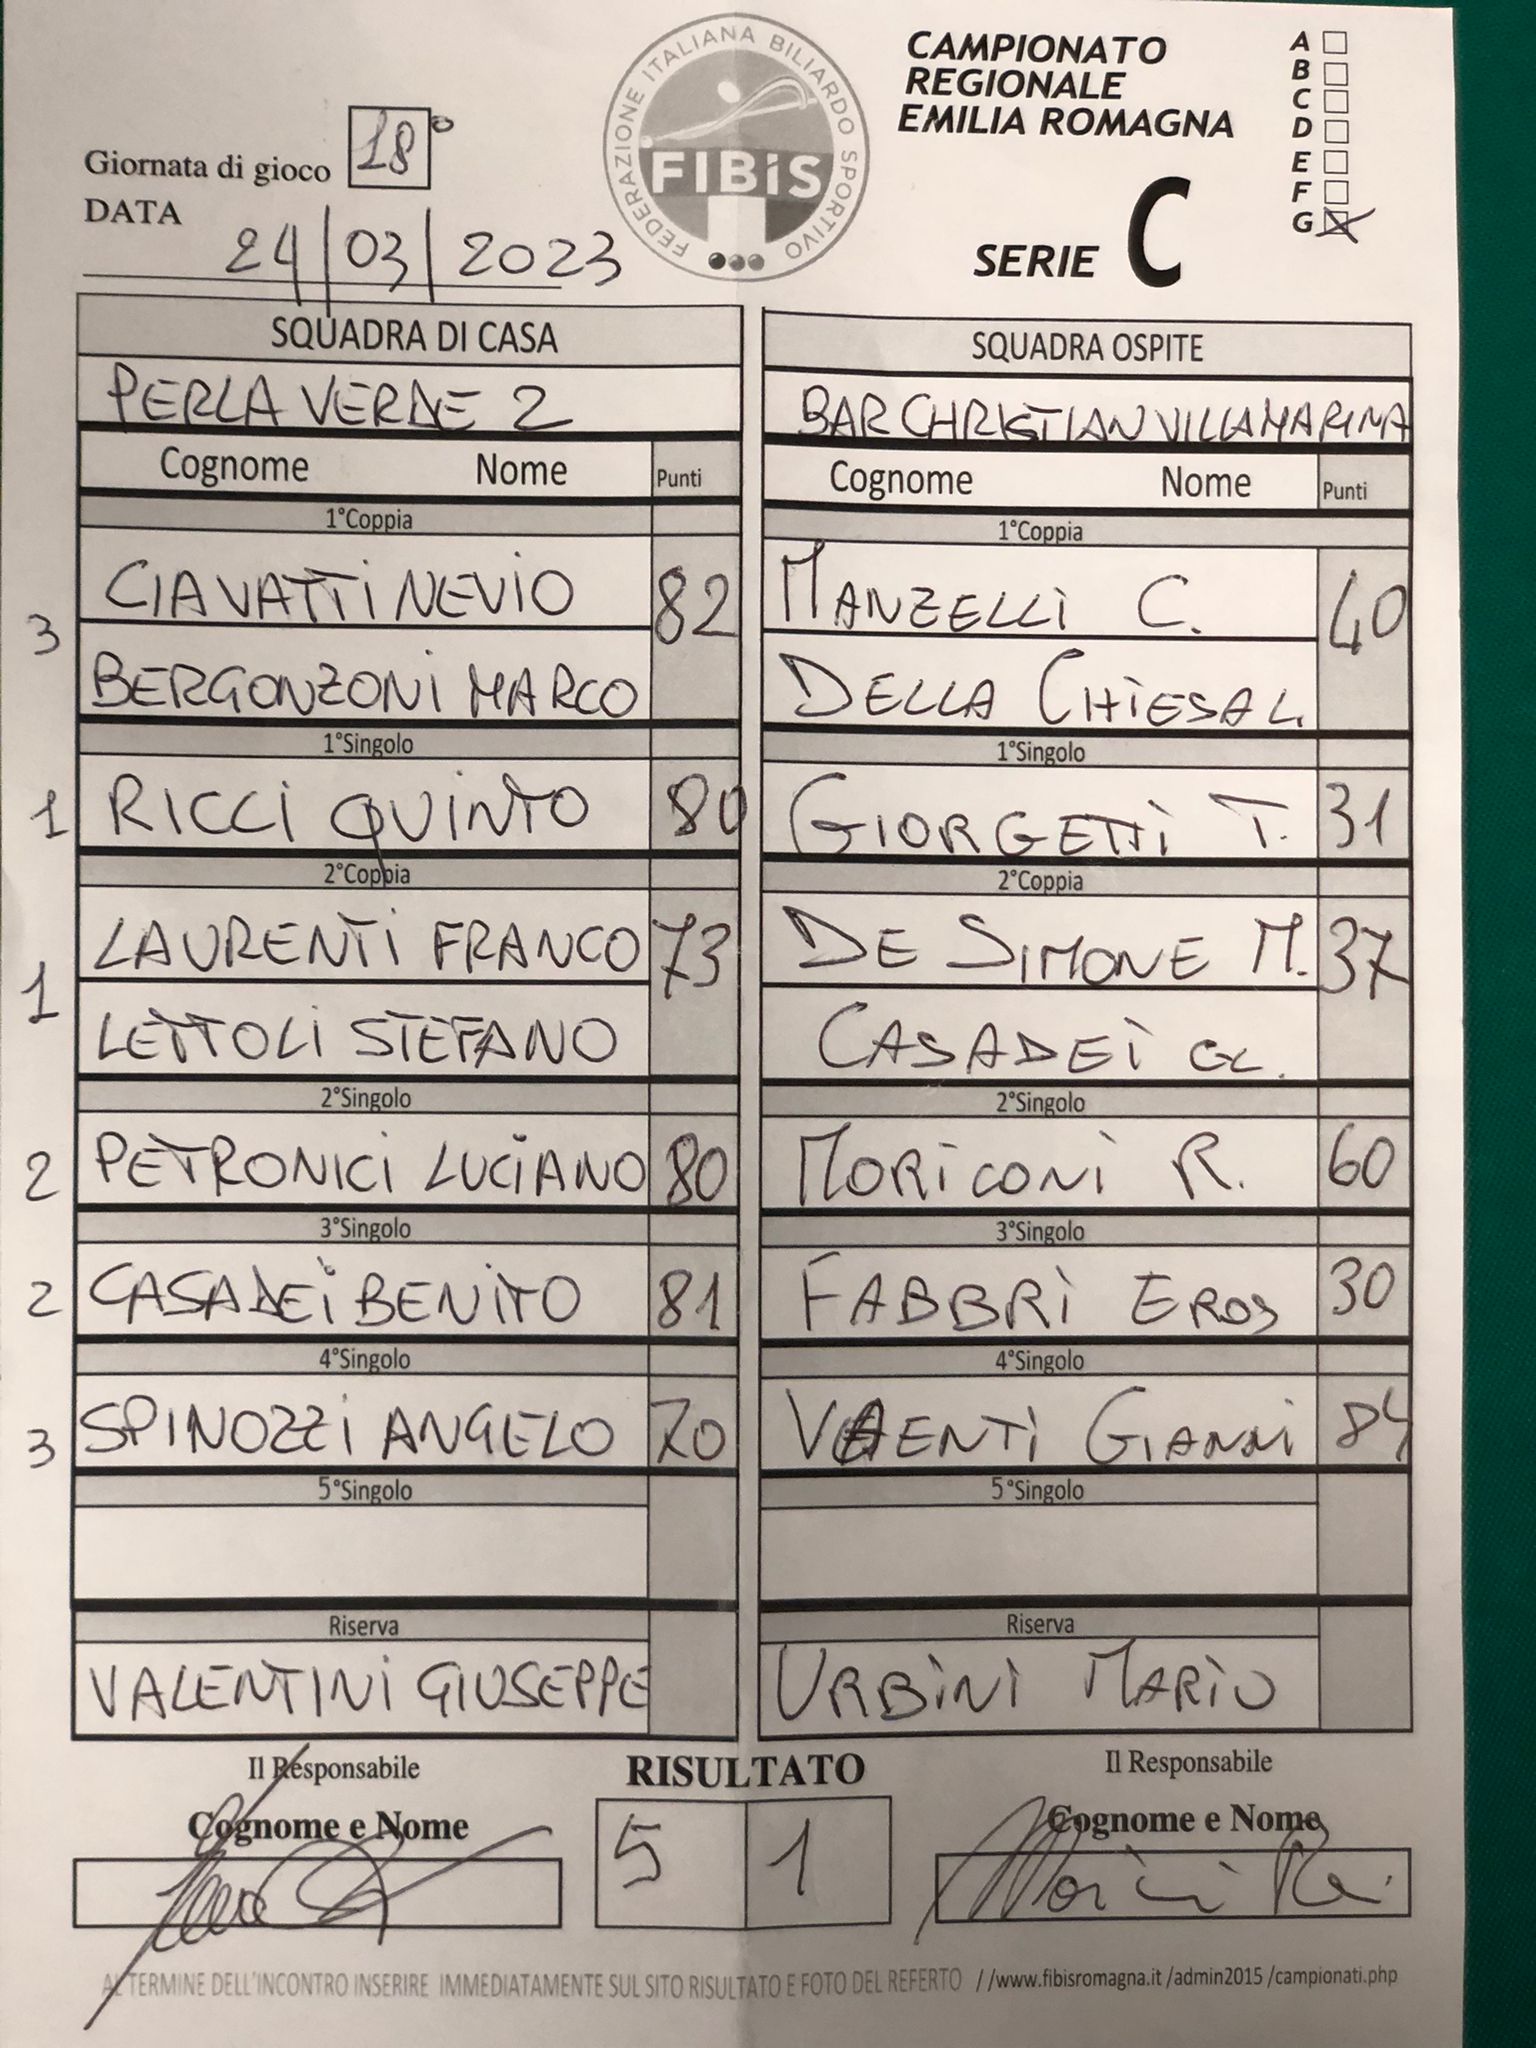 FEDERAZIONE ITALIANA BILIARDO SPORTIVO
FIBiS
CAMPIONATO
REGIONALE
EMILIA ROMAGNA
SERIE C
A
B
C
D
E
F
G
Giornata di gioco 18°
DATA
24/03/2023
SQUADRA DI CASA
PERLA VERDE 2
Cognome Nome Punti
1°Coppia
CIAVATTI NEVIO 82
3
BERGONZONI MARCO
1°Singolo
1 RICCI QUINTO 80
2°Coppia
LAURENTI FRANCO 73
1
LETTOLI STEFANO
2°Singolo
2 PETRONICI LUCIANO 80
3°Singolo
2 CASADEI BENITO 81
4°Singolo
3 SPINOZZI ANGELO 70
5°Singolo
Riserva
VALENTINI GIUSEPPE
SQUADRA OSPITE
BAR CHRISTIAN VILLAMARINA
Cognome Nome Punti
1°Coppia
MANZELLI C. 40
DELLA CHIESA L.
1°Singolo
GIORGETTI T. 31
2°Coppia
DE SIMONE M. 37
CASADEI
2°Singolo
MORICONI R. 60
3°Singolo
FABBRI EROS 30
4°Singolo
GIANNI 84
5°Singolo
Riserva
URBINI MARIO
Il Responsabile
Cognome e Nome
RISULTATO
5 1
Il Responsabile
Cognome e Nome
AL TERMINE DELL'INCONTRO INSERIRE IMMEDIATAMENTE SUL SITO RISULTATO E FOTO DEL REFERTO //www.fibisromagna.it /admin2015 /campionati.php